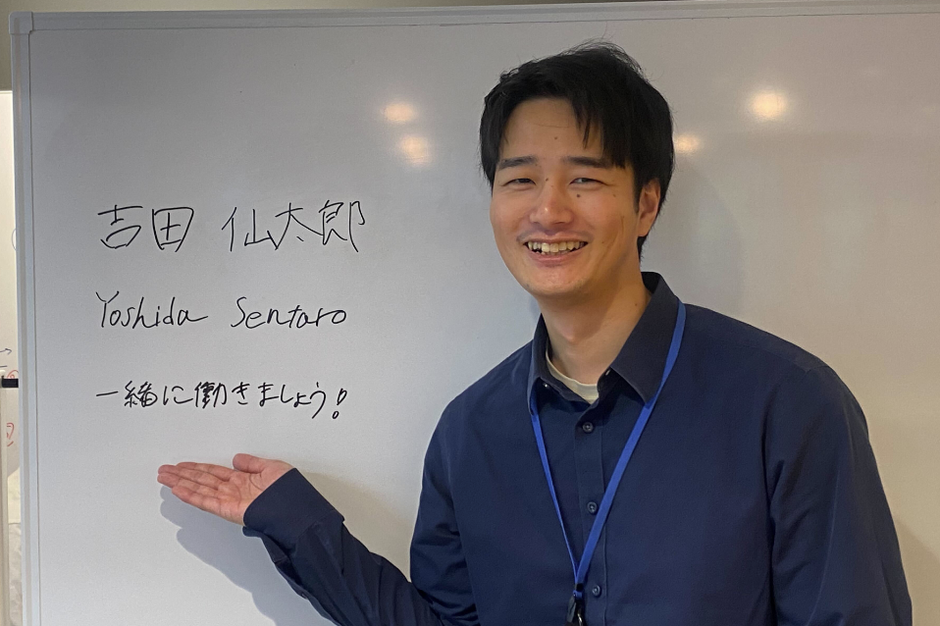 吉田 仙太郎
Yoshida Sentaro
一緒に働きましょう!